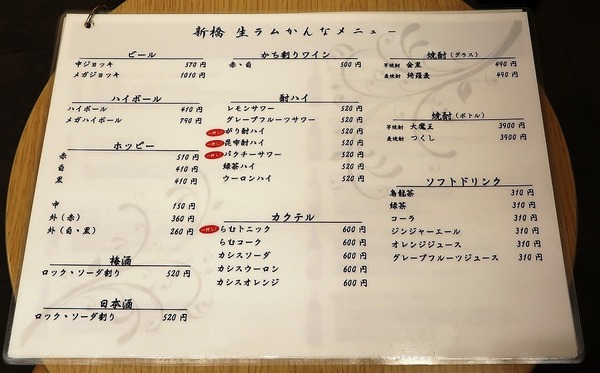 新橋 生ラムかんなメニュー
ビール
中ジョッキ 570円
メガジョッキ 1010円
ハイボール
ハイボール 410円
メガハイボール 790円
ホッピー
赤 510円
白 410円
黒 410円
中 150円
外(赤) 360円
外(白・黒) 260円
梅酒
ロック・ソーダ割り 520円
日本酒
ロック・ソーダ割り 520円
かち割りワイン
赤・白 500円
酎ハイ
レモンサワー 520円
グレープフルーツサワー 520円
一押し! がり酎ハイ 520円
一押し! 昆布酎ハイ 520円
一押し! パクチーサワー 520円
緑茶ハイ 520円
ウーロンハイ 520円
カクテル
一押し! らむトニック 600円
らむコーク 600円
カシスソーダ 600円
カシスウーロン 600円
カシスオレンジ 600円
焼酎(グラス)
芋焼酎 金黒 490円
麦焼酎 綺羅麦 490円
焼酎(ボトル)
芋焼酎 大魔王 3900円
麦焼酎 つくし 3900円
ソフトドリンク
烏龍茶 310円
緑茶 310円
コーラ 310円
ジンジャーエール 310円
オレンジジュース 310円
グレープフルーツジュース 310円